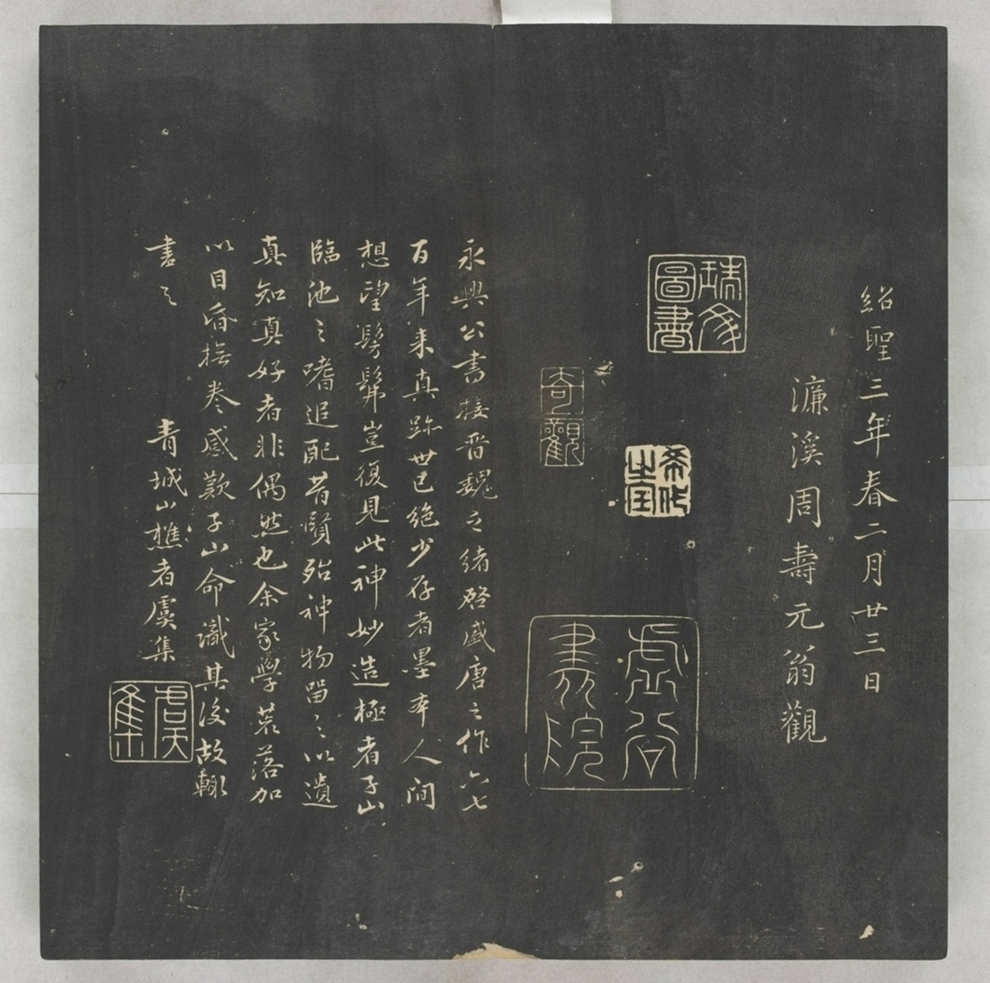 紹聖三年春二月廿三日
濂溪周壽元翁觀
圖書
奇觀
書院
永興公書接晋魏之緒啓盛唐之作六七
百年来真跡世已絶少存者墨本人間
想望髣髴豈復見此神妙造極者子山
臨池之嗜追配昔賢殆神物留之以遺
真知真好者非偶然也余家學荒落加
以目昏撫卷感歎子山命識其後故輒
書之
青城山樵者虞集
虞集